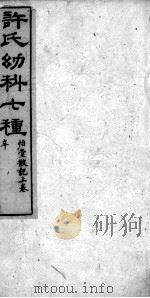 許氏幼科七種
怡堂散記上卷
年